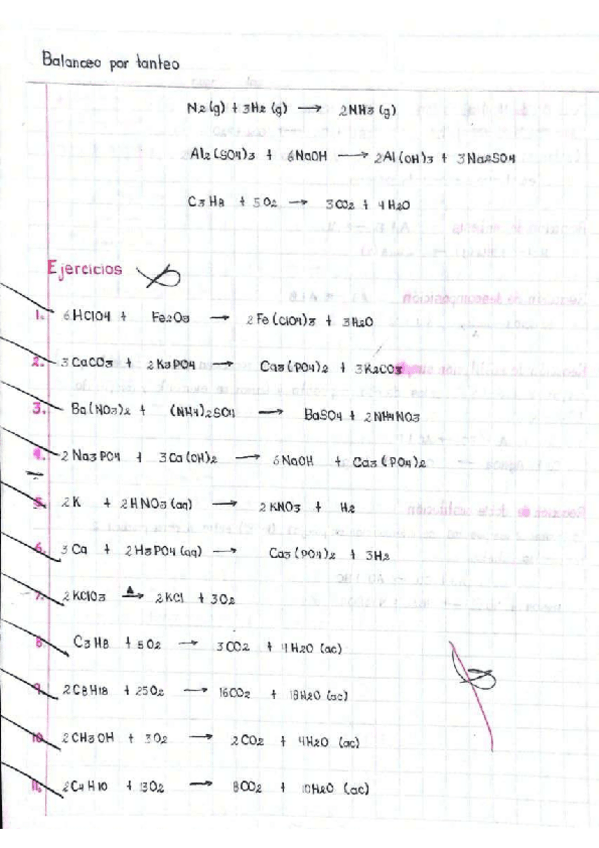 Balanceo por tanteo
N2 (g) + 3H2 (g) → 2NH3 (g)
Al2(SO4)3 + 6NaOH → 2Al(OH)3 + 3Na2SO4
C3H8 + 5O2 → 3CO2 + 4H2O
Ejercicios
1. 6HClO4 + Fe2O3 → 2Fe(ClO4)3 + 3H2O
2. 3CaCO3 + 2K3PO4 → Ca3(PO4)2 + 3K2CO3
3. Ba(NO3)2 + (NH4)2SO4 → BaSO4 + 2NH4NO3
4. 2Na3PO4 + 3Ca(OH)2 → 6NaOH + Ca3(PO4)2
5. 2K + 2HNO3(aq) → 2KNO3 + H2
6. 3Ca + 2H3PO4(aq) → Ca3(PO4)2 + 3H2
7. 2KClO3 Δ→ 2KCl + 3O2
8. C3H8 + 5O2 → 3CO2 + 4H2O (ac)
9. 2C8H18 + 25O2 → 16CO2 + 18H2O (ac)
10. 2CH3OH + 3O2 → 2CO2 + 4H2O (ac)
11. 2C4H10 + 13O2 → 8CO2 + 10H2O (ac)